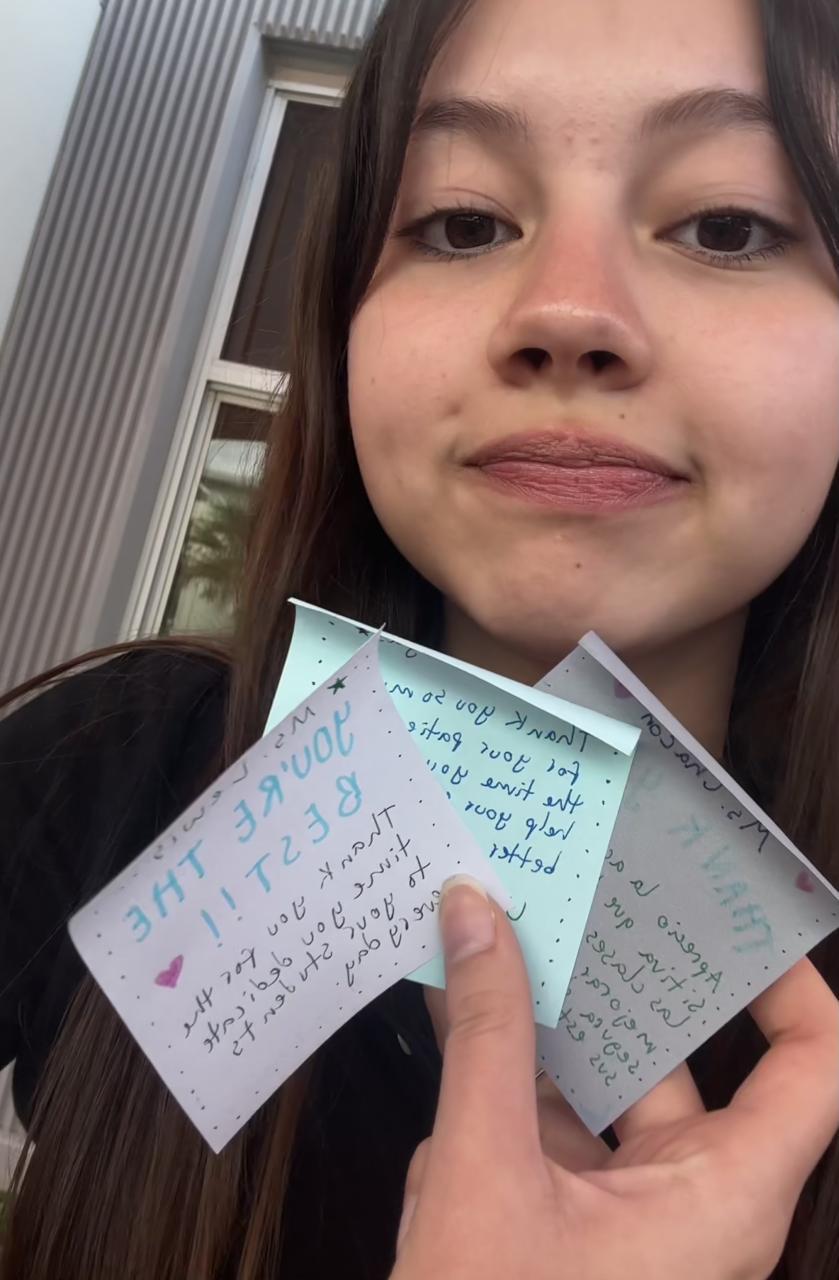 Ms. Lewis
YOU'RE THE
BEST!!
Thank you for the
time you dedicate
to your students
every day
Thank you so
for your
the time you
help your
better
Ms. Chacon
THANK
Aprecio la
sitiva que
las clases
mejorar
segura
sus est